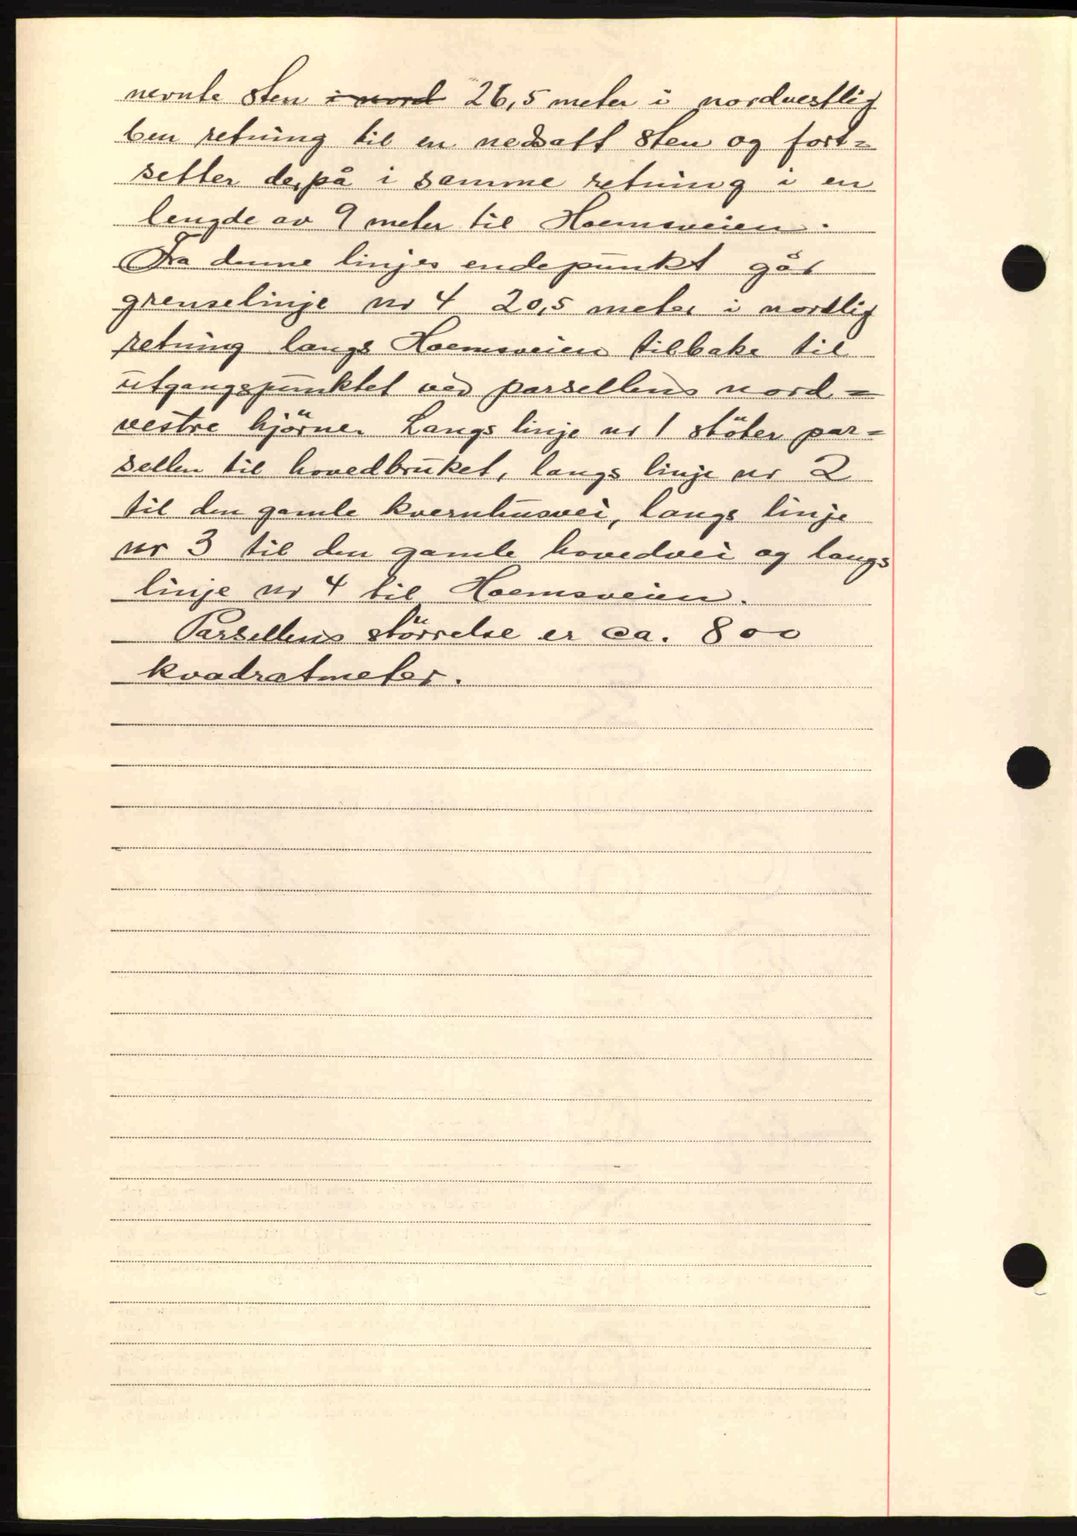 nevnte sten i nord 26,5 meter i nordvestlig
ben retning til en nedsatt sten og fort=
setter derpå i samme retning i en
lengde av 9 meter til Hoemsveien.
Fra denne linjes endepunkt går
grenselinje nr 4 20,5 meter i nordlig
retning langs Hoemsveien tilbake til
utgangspunktet ved parsellens nord=
vestre hjörne. Langs linje nr 1 stöter par=
sellen til hovedbruket, langs linje nr 2
til den gamle kvernhusvei, langs linje
nr 3 til den gamle hovedvei og langs
linje nr 4 til Hoemsveien.
Parsellens störrelse er ca. 800
kvadratmeter.